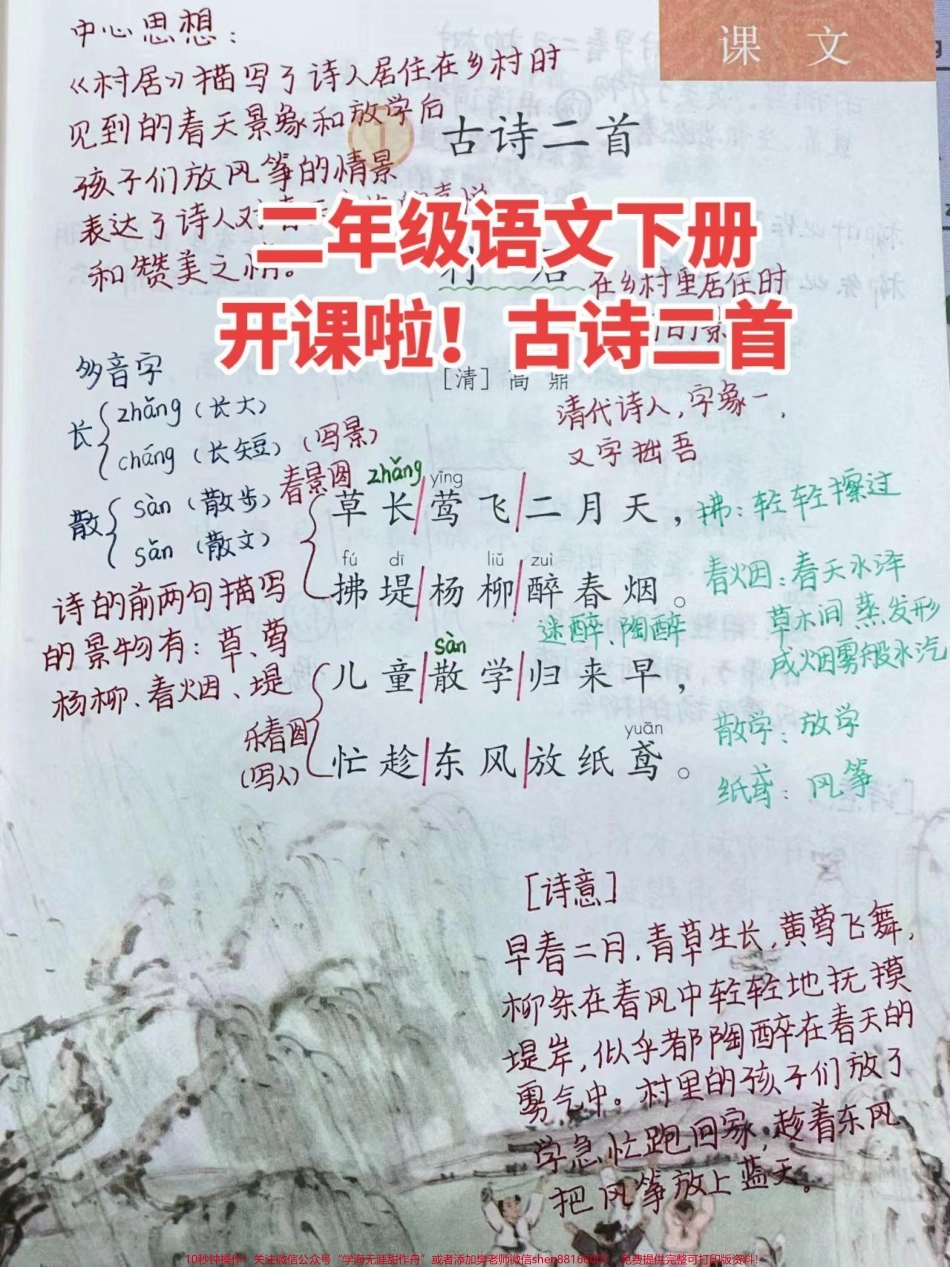 课 文
中心思想：
《村居》描写了诗人居住在乡村时
见到的春天景象和放学后
孩子们放风筝的情景
表达了诗人对春
和赞美之情。
1 古诗二首
二年级语文下册
开课啦！古诗二首
村 居
在乡村里居住时
的景
[清] 高 鼎
清代诗人，字象一，
又字拙吾
多音字
长 zhǎng（长大）
cháng（长短）
散 sàn（散步）
sǎn（散文）
（写景）
春景图
zhǎng yīng
草长莺飞二月天，
拂：轻轻擦过
fú dī liǔ zuì
拂堤杨柳醉春烟。
迷醉、陶醉
春烟：春天水泽
草木间蒸发形
成烟雾般水汽
诗的前两句描写
的景物有：草、莺
杨柳、春烟、堤
sàn
儿童散学归来早，
散学：放学
乐春图
（写人）
yuān
忙趁东风放纸鸢。
纸鸢：风筝
[诗意]
早春二月，青草生长，黄莺飞舞，
柳条在春风中轻轻地抚摸
堤岸，似乎都陶醉在春天的
雾气中。村里的孩子们放了
学急忙跑回家，趁着东风
把风筝放上蓝天。
10秒钟操作！关注微信公众号“学海无涯甜作舟”或者添加樊老师微信
免费提供完整可打印版资料！